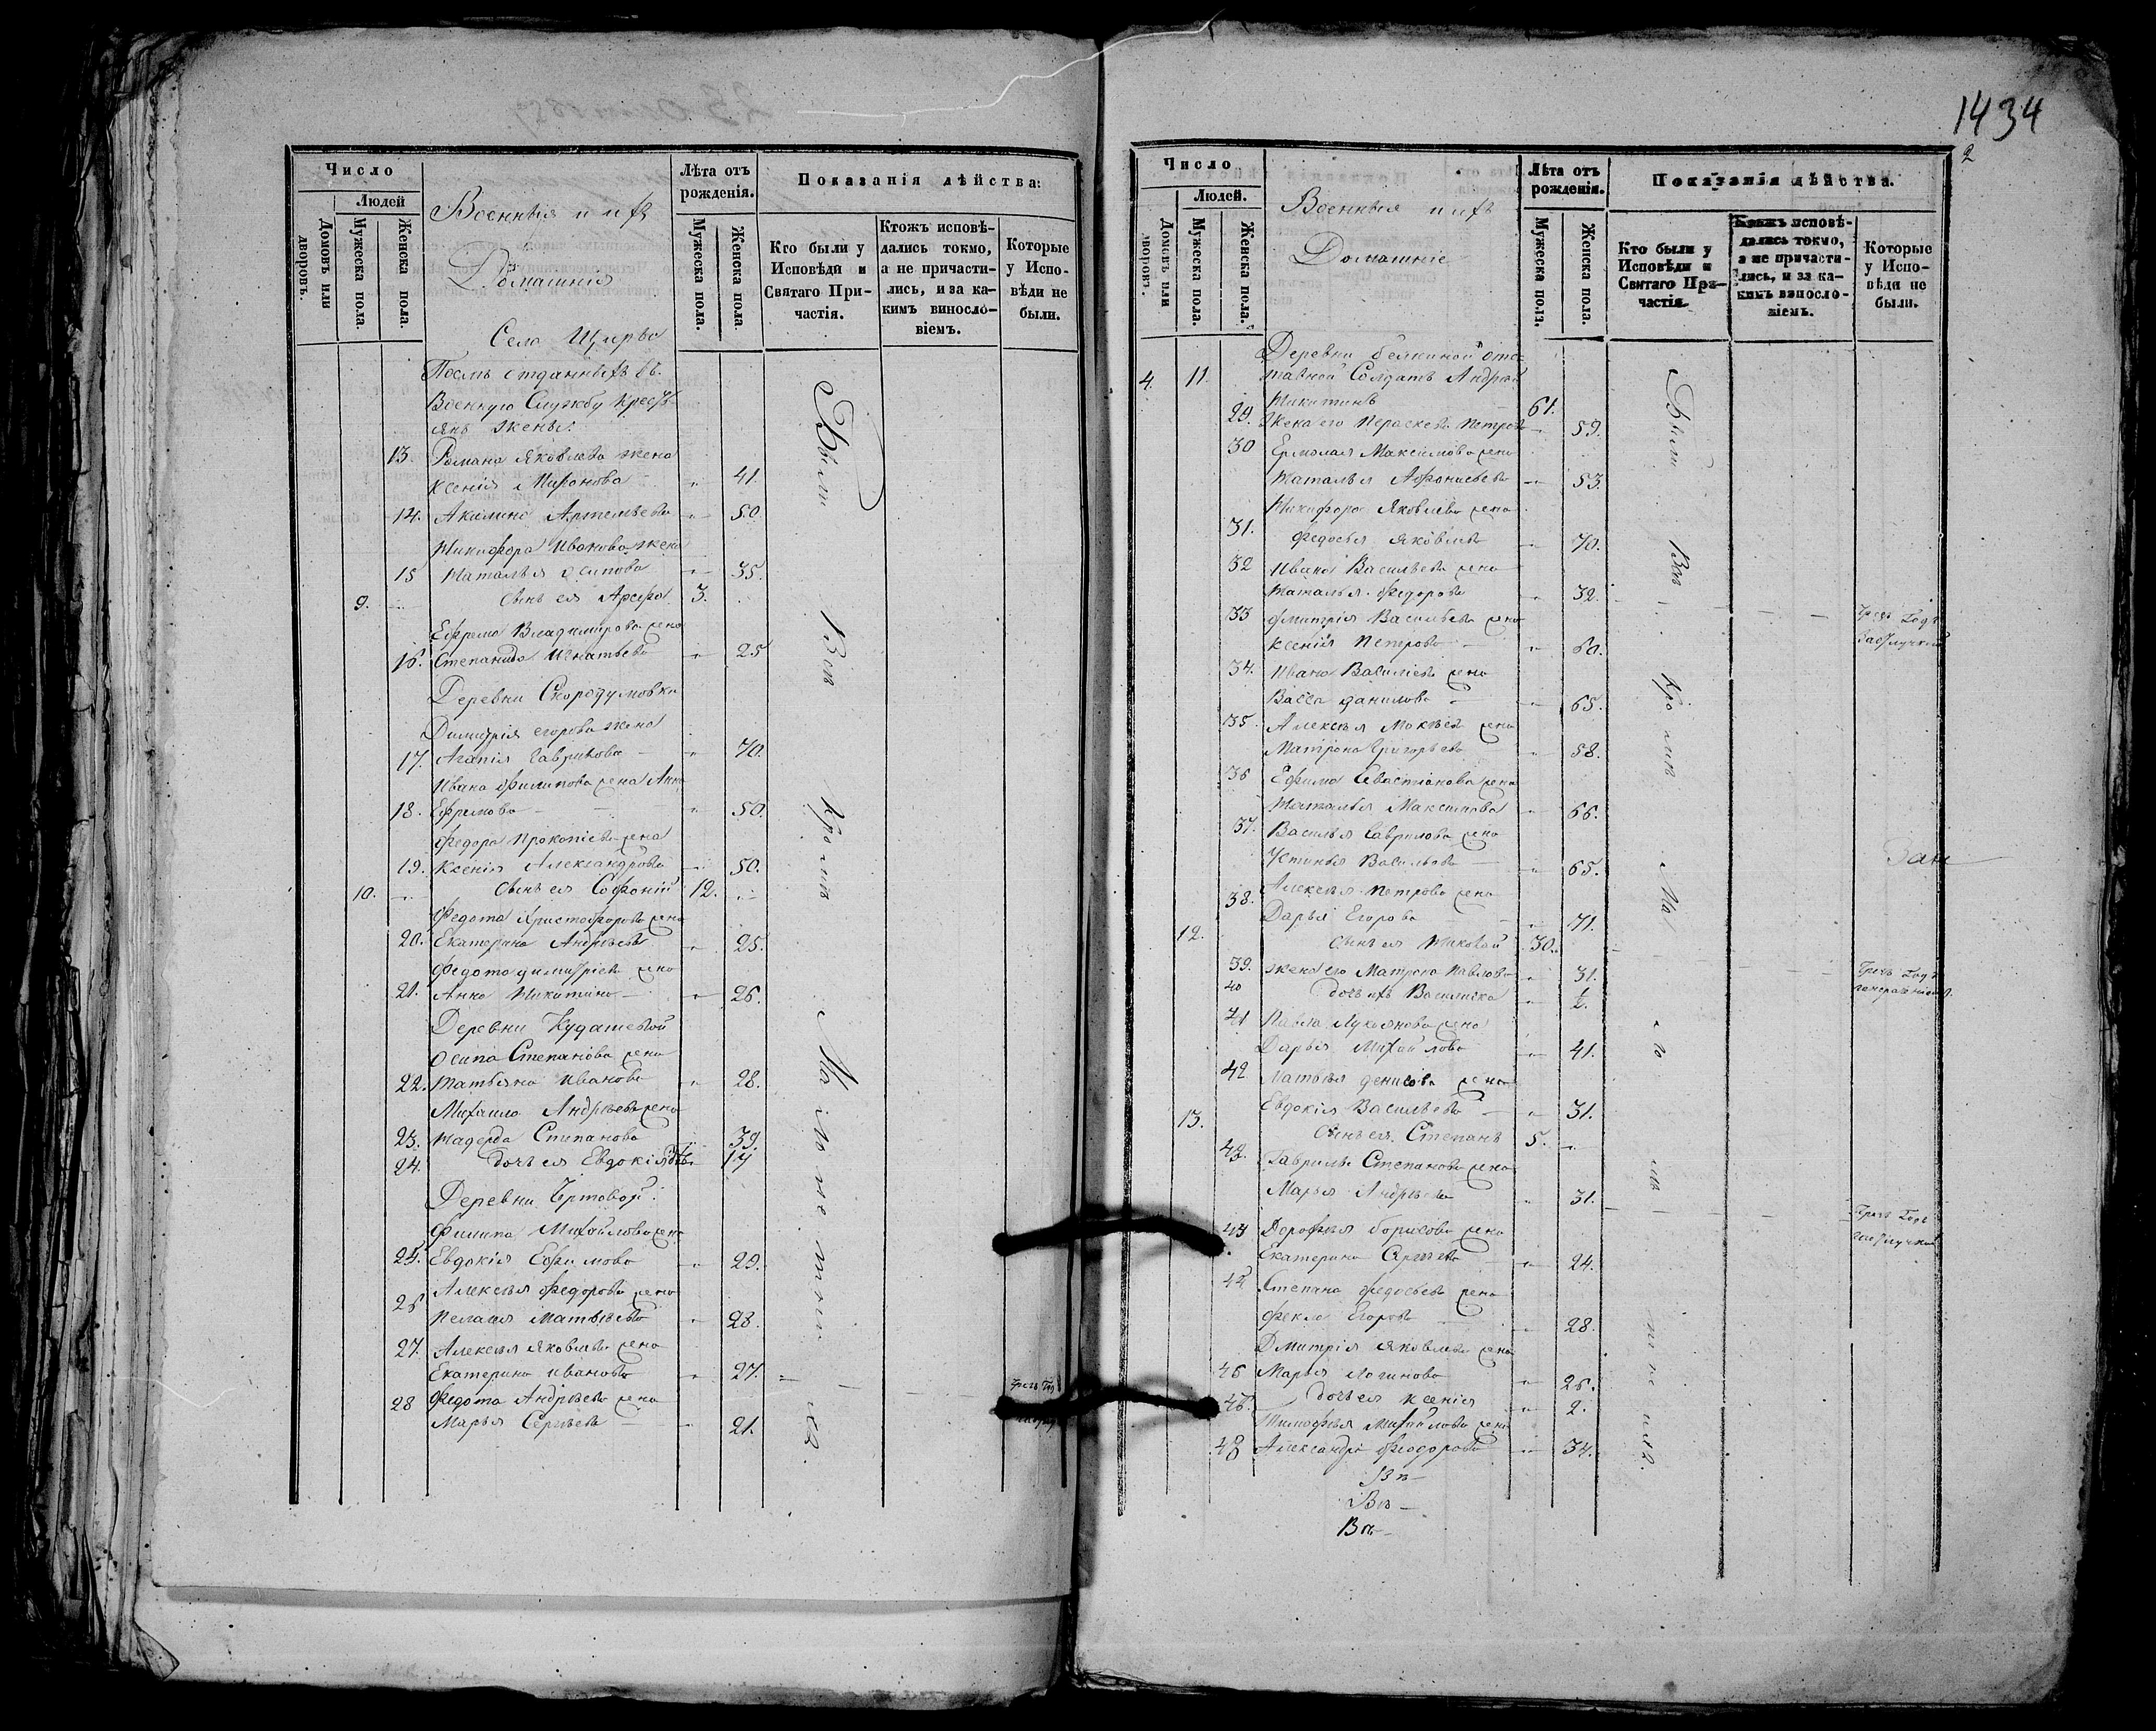 Число
Людей
Домовъ или дворовъ.
Мужеска пола.
Женска пола.
Военныя и ихъ
Домашнія
Лѣта отъ рожденія.
Мужеска пола.
Женска пола
Показанія дѣйства:
Кто были у Исповѣди и Святаго Причастія.
Ктожъ исповѣдались токмо, а не причастились, и за какимъ винословіемъ.
Которые у Исповѣди не были.
Село
Послѣ отданныхъ въ
Военную Службу Кресть
янъ жены.
13. Романа Яковлева жена
Ксенія Миронова 41.
14. Акилина Артемьева 50.
Никифора Иванова жена
15 Наталья Осипова 35.
9. Сынъ ея 3.
Ефрема Владимирова жена
16. Степанида Игнатьева 25
Деревни Скородумовки
Димитрія Егорова жена
17. Агапія Гаврилова 70.
Ивана Филипова жена Анна
18. Ефремова 50.
Федора Прокопіева жена
19. Ксенія Александрова 50.
10. Сынъ ея Софоній 12.
Федота Христофорова жена
20. Екатерина Андрѣева 25.
Федота Димитріева жена
21. Анна Никитина 26.
Деревни Кудашевой
Осипа Степанова жена
22. Татьяна Иванова 28.
Михаила Андрѣева жена
23. Надежда Степанова 39.
24. дочь ея Евдокія 14
Деревни Чертовой
Филипа Михайлова жена
25. Евдокія Ефимова 29.
Алексѣя Федорова жена
26 Пелагея Матвѣева 28.
27. Алексѣя Яковлева жена
Екатерина Иванова 27.
28 Федота Андрѣева жена
Марья Сергѣева 21.
Были Всѣ Кромѣ Малолетныхъ.
1434
2
Число
Людей.
Домовъ или дворовъ.
Мужеска пола.
Женска пола.
Военныя и ихъ
Домашніе
Лѣта отъ рожденія.
Мужеска пола.
Женска пола.
Показанія дѣйства.
Кто были у Исповѣди и Святаго Причастія.
Ктожъ исповѣдались токмо, а не причастились, и за какимъ винословіемъ.
Которые у Исповѣди не были.
4. 11. Деревни Белкиной отс
тавной Солдатъ Андрей
Никитинъ 61.
29. Жена его Параскева Петрова 59.
30 Ермолая Максимова жена
Наталья Афонасьева 53.
Никифора Яковлева жена
31. Федосья Яковлева 70.
32 Ивана Васильева жена
Наталья Федорова 32.
33 Дмитрія Васильева жена
Ксенія Петрова 60.
34. Ивана Васильева жена
Васса Данилова 65.
35. Алексѣя жена
Матрона Григорьева 58.
36 Ефима Севастіанова жена
Наталья Максимова 66.
37. Василья Гаврилова жена
Устинья Васильева 65.
38. Алексѣя Петрова жена
Дарья Егорова 71.
12. Сынъ ея 30.
39. жена его Матрона Павлова 31.
40 дочь ихъ Василиса ½.
41 Павла Лукьянова жена
Дарья Михайлова 41.
42 Матвѣя Денисова жена
Евдокія Васильева 31.
13. Сынъ ея Степанъ 5.
43. Гаврилы Степанова жена
Марья Андрѣева 31.
Дорофея Борисова жена
Екатерина Сергѣева 24.
Степана Федосѣева жена
Фекла Егорова 28.
Дмитрія Яковлева жена
46 Марья Логинова 26.
дочь ея Ксенія 2.
Тимофѣя Михайлова жена
48 Александра Федорова 34.
Были Всѣ Кромѣ Малолетныхъ.